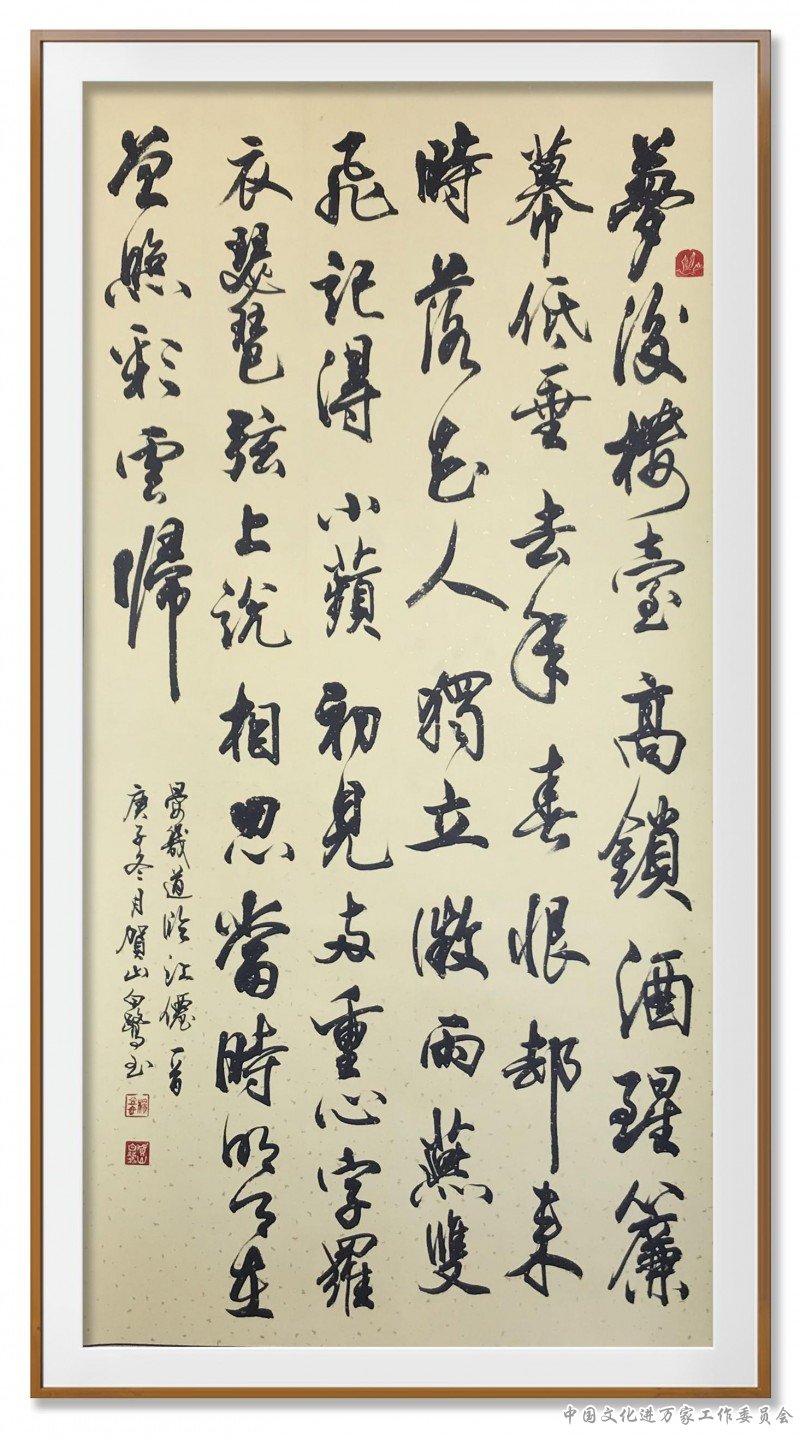 夢後樓臺高鎖酒醒簾
幕低垂去年春恨却来
時落花人獨立微雨燕雙
飛記得小蘋初見兩重心字羅
衣琵琶弦上說相思當時明月在
曾照彩雲歸
晏幾道臨江僊一首
庚子冬月賀山白鷺书
中国文化进万家工作委员会